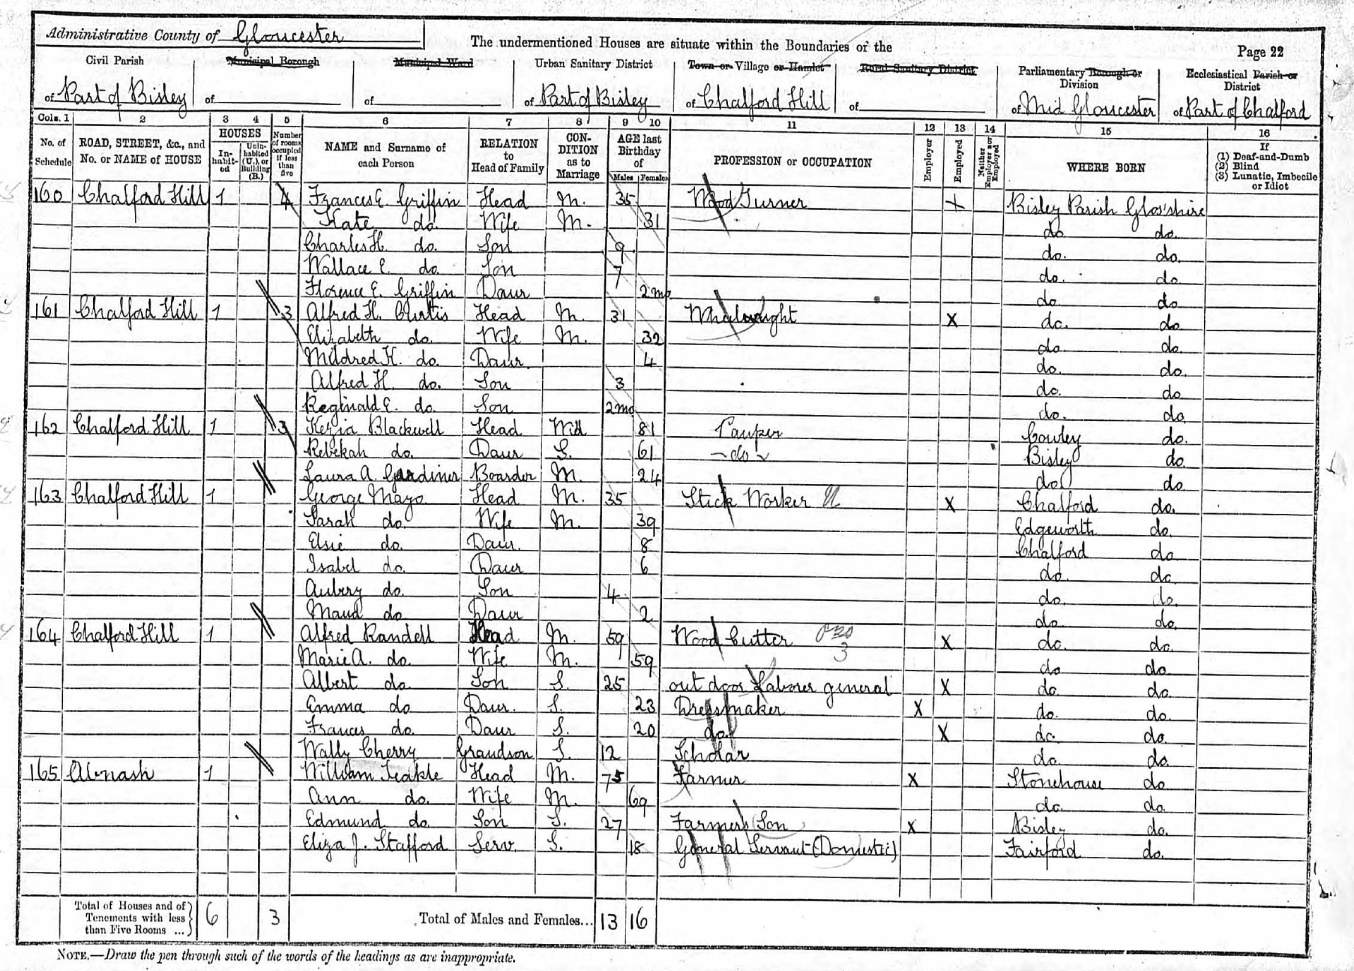 Administrative County of Gloucester
The undermentioned Houses are situate within the Boundaries of the
Page 22
Civil Parish
Municipal Borough
Municipal Ward
Urban Sanitary District
Town or Village or Hamlet
Rural Sanitary District
Parliamentary Borough or Division
Ecclesiastical Parish or District
of Part of Bisley
of
of
of Part of Bisley
of Chalford Hill
of
of Mid Gloucester
of Part of Chalford
Cols. 1 2 3 4 5 6 7 8 9 10 11 12 13 14 15 16
No. of Schedule
ROAD, STREET, &c., and No. or NAME of HOUSE
HOUSES
Inhabited
Uninhabited (U.), or Building (B.)
Number of rooms occupied if less than five
NAME and Surname of each Person
RELATION to Head of Family
CONDITION as to Marriage
AGE last Birthday of
Males
Females
PROFESSION or OCCUPATION
Employer
Employed
Neither Employer nor Employed
WHERE BORN
If (1) Deaf-and-Dumb (2) Blind (3) Lunatic, Imbecile or Idiot
160 Chalford Hill 1 4 Frances E. Griffin Head M. 35 Wood Turner X Bisley Parish Glos'shire
Kate do. Wife M. 31 do. do.
Charles H. do. Son 9 do. do.
Wallace E. do. Son 7 do. do.
Florence E. Griffin Daur 2 mo do do.
161 Chalford Hill 1 3 Alfred H. Curtis Head M. 31 Wheelwright X do. do
Elizabeth do. Wife M. 32 do. do.
Mildred H. do. Daur 4 do. do.
Alfred H. do. Son 3 do. do.
Reginald E. do. Son 2 mo do. do.
162 Chalford Hill 1 3 Kezia Blackwell Head Wid 81 Pauper Cowley do.
Rebekah do. Daur S. 61 do Bisley do.
Laura A. Gardiner Boarder M. 24 do do
163 Chalford Hill 1 George Mayo Head M. 35 Stick Worker X Chalford do.
Sarah do. Wife M. 39 Edgeworth do.
Elsie do. Daur. 8 Chalford do
Isabel do. Daur 6 do. do.
Aubrey do. Son 4 do. do.
Maud do. Daur 2 do. do.
164 Chalford Hill 1 Alfred Randell Head M. 59 Wood Cutter X do. do.
Marie A. do. Wife M. 59 do. do.
Albert do. Son S. 25 out door Laborer general X do. do.
Emma do Daur. S. 23 Dressmaker X do. do.
Frances do. Daur S. 20 do X do. do.
Wally Cherry Grandson S. 12 Scholar do. do.
165 Abnash 1 William Teakle Head M. 75 Farmer X Stonehouse do
Ann do. Wife M. 69 do. do.
Edmund do. Son S. 27 Farmers Son X Bisley do.
Eliza J. Stafford Serv S. 18 General Servant (Domestic) Fairford do.
Total of Houses and of Tenements with less than Five Rooms ... 6 3 Total of Males and Females... 13 16
NOTE.—Draw the pen through such of the words of the headings as are inappropriate.